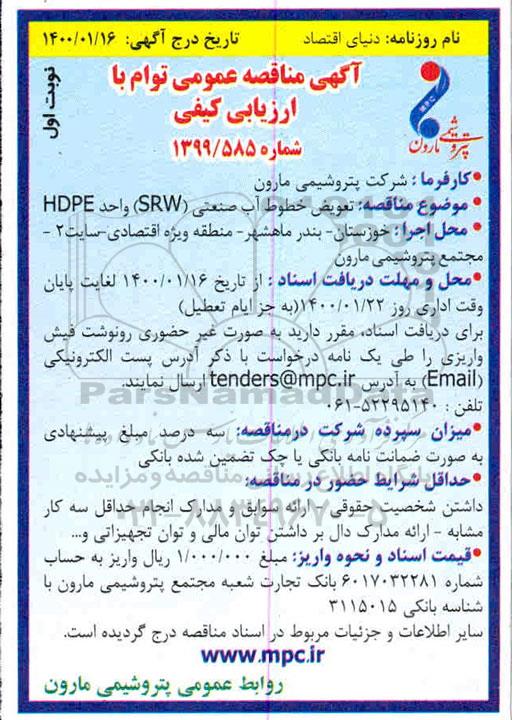 نام روزنامه: دنیای اقتصاد
تاریخ درج آگهی: ۱۴۰۰/۰۱/۱۶
نوبت اول
آگهی مناقصه عمومی توام با
ارزیابی کیفی
شماره ۱۳۹۹/۵۸۵
MPC
پتروشیمی مارون
•کارفرما : شرکت پتروشیمی مارون
•موضوع مناقصه: تعویض خطوط آب صنعتی (SRW) واحد HDPE
•محل اجرا : خوزستان- بندر ماهشهر- منطقه ویژه اقتصادی-سایت۲ -
مجتمع پتروشیمی مارون
•محل و مهلت دریافت اسناد : از تاریخ ۱۴۰۰/۰۱/۱۶ لغایت پایان
وقت اداری روز ۱۴۰۰/۰۱/۲۲(به جز ایام تعطیل)
برای دریافت اسناد، مقرر دارید به صورت غیر حضوری رونوشت فیش
واریزی را طی یک نامه درخواست با ذکر آدرس پست الکترونیکی
(Email) به آدرس tenders@mpc.ir ارسال نمایند.
تلفن : ۵۲۲۹۵۱۴۰-۰۶۱
•میزان سپرده شرکت درمناقصه: سه درصد مبلغ پیشنهادی
به صورت ضمانت نامه بانکی یا چک تضمین شده بانکی
•حداقل شرایط حضور در مناقصه:
داشتن شخصیت حقوقی - ارائه سوابق و مدارک انجام حداقل سه کار
مشابه - ارائه مدارک دال بر داشتن توان مالی و توان تجهیزاتی و...
•قیمت اسناد و نحوه واریز: مبلغ ۱/۰۰۰/۰۰۰ ریال واریز به حساب
شماره ۶۰۱۷۰۳۲۲۸۱ بانک تجارت شعبه مجتمع پتروشیمی مارون با
شناسه بانکی ۳۱۱۵۰۱۵
سایر اطلاعات و جزئیات مربوط در اسناد مناقصه درج گردیده است.
www.mpc.ir
روابط عمومی پتروشیمی مارون
ParsNamadData
پایگاه اطلاع رسانی مناقصه و مزایده
۰۲۱-۸۸۳۴۹۶۷۰-۵